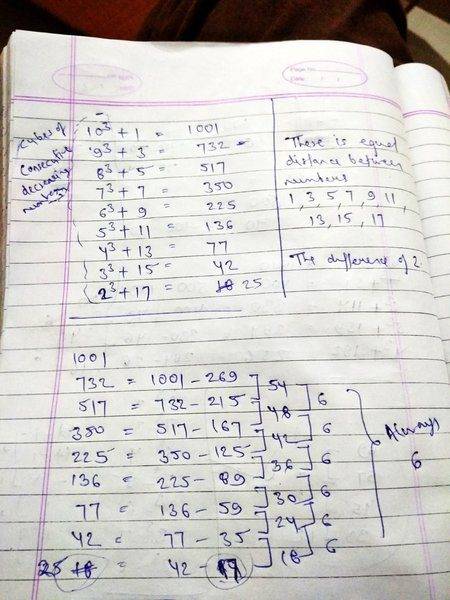 Cubes of
Consecutive
decreasing
numbers
10³ + 1 = 1001
9³ + 3 = 732
8³ + 5 = 517
7³ + 7 = 350
6³ + 9 = 225
5³ + 11 = 136
4³ + 13 = 77
3³ + 15 = 42
2³ + 17 = 25
Page No.
Date
There is equal
distance between
numbers
1, 3, 5, 7, 9, 11,
13, 15, 17
The difference of 2.
1001
732 = 1001 - 269
517 = 732 - 215
350 = 517 - 167
225 = 350 - 125
136 = 225 - 89
77 = 136 - 59
42 = 77 - 35
25 = 42 - 17
54
48
42
36
30
24
18
6
6
6
6
6
6
Always
6